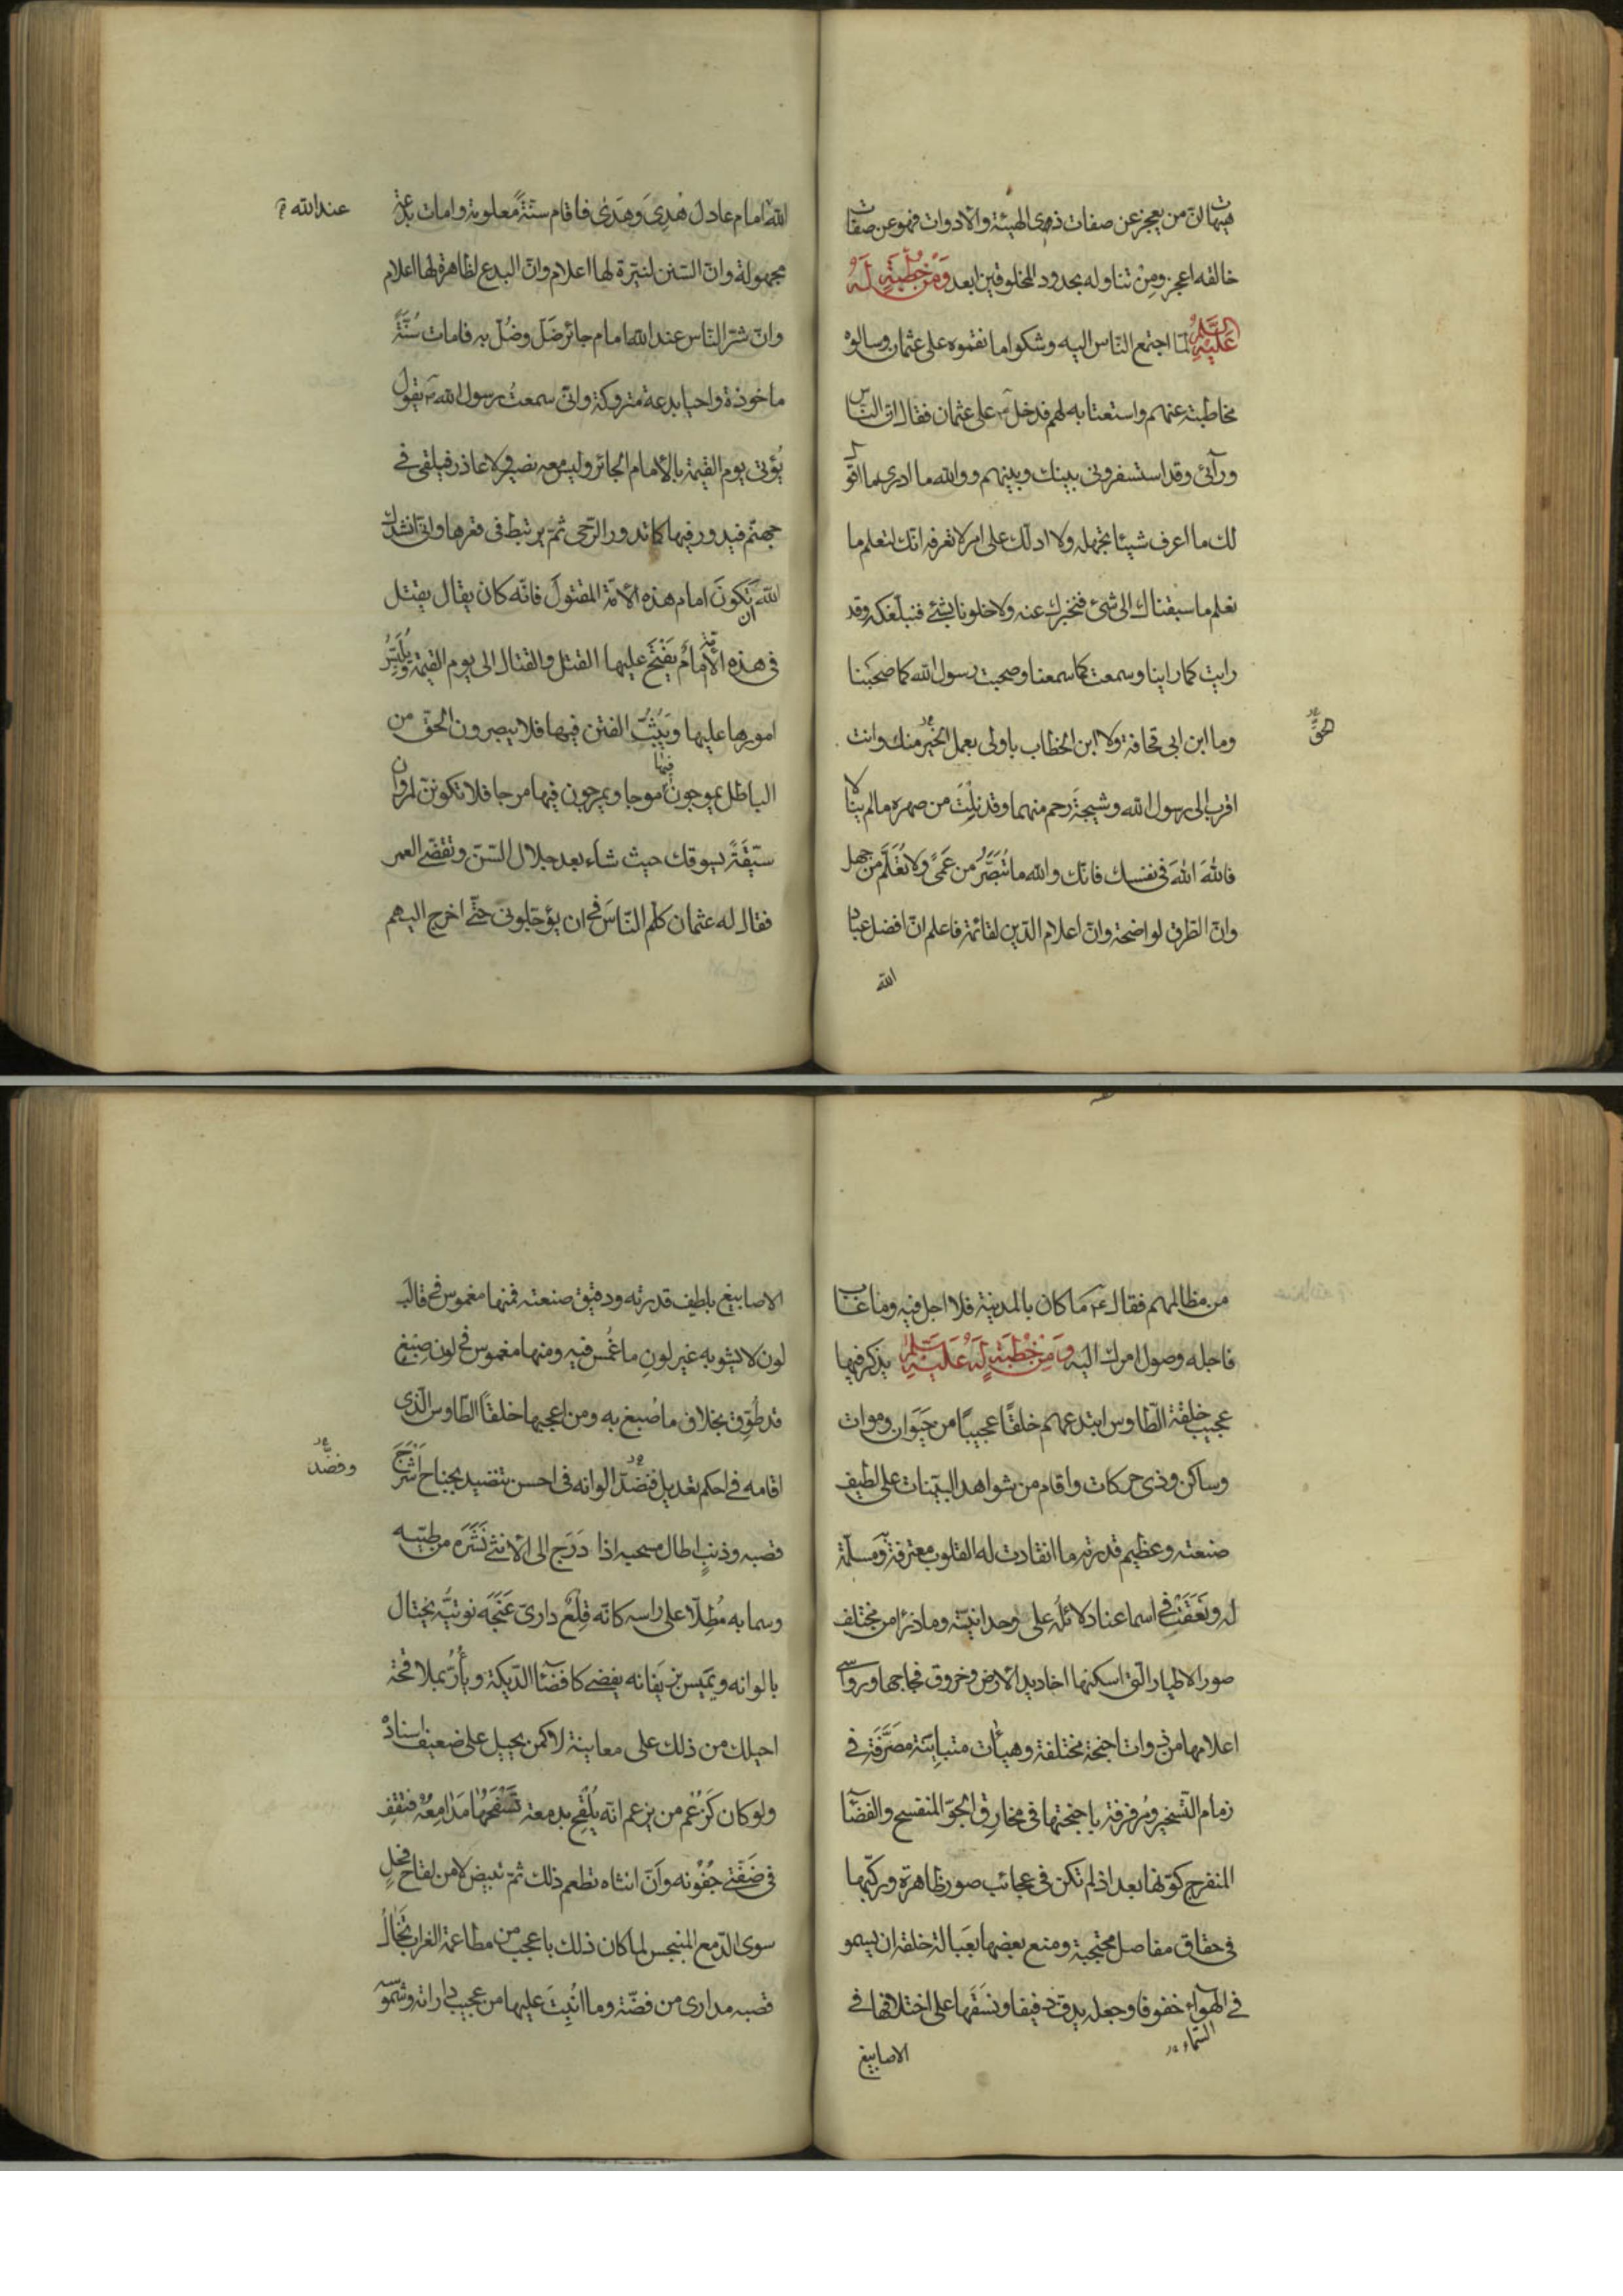 هيهات انّ من يعجز عن صفات ذى الهيئة والادوات فهو عن صفات
خالقه اعجز ومِن تناوله بحدود المخلوقين ابعد وَمِن خُطْبَةٍ لَهُ
عَلَيْهِ السَّلَم لمّا اجتمع النّاس اليه وشكوا ما نقموه على عثمان وسالوه
مخاطبته عنهم واستعتابه لهم فدخل على عثمان فقال انّ النّاس
ورآئى وقد استسفرونى بينك وبينهم ووالله ما ادرى ما اقول
لك ما اعرف شيئا تجهله ولا ادلّك على امر لا تعرفه انّك لتعلم ما
نعلم ما سبقناك الى شئ فنخبرك عنه ولا خلونا بشئ فنبلّغكه وقد
رايت كما راينا وسمعت كما سمعنا وصحبت رسول الله كما صحبنا
وما ابن ابى قحافة ولا ابن الخطاب باولى بعمل الخير منك وانت
الحقّ
اقرب الى رسول الله وشيجة رحم منهما وقد نِلتَ من صهره ما لم ينالا
فاللهَ اللهَ فى نفسك فانّك والله ما تُبَصَّرُ من عَمًى ولا تُعَلَّم من جهل
وانّ الطّرق لواضحة وانّ اعلام الدّين لقائمة فاعلم انّ افضل عباد
الله
الله امام عادل هُدِىَ وهَدى فاقام سنّةً معلومة وامات بدعة
عند الله
مجهولة وانّ السّنن لنيّرة لها اعلام وانّ البدع لظاهرة لها اعلام
وانّ شرّ النّاس عند الله امام جائر ضَلّ وضُلّ به فامات سُنَّةً
ماخوذة واحيا بدعة متروكة وانّى سمعتُ رسول الله يقول
يُؤتى يوم القيمة بالامام الجائر وليس معه نصير ولا عاذر فيلقى فى
جهنّم فيدور فيها كما تدور الرّحى ثمّ يرتبط فى قعرها وانّى انشدك
الله ان تكونَ امام هذه الامّة المقتولَ فانّه كان يقال يقتل
فى هذه الامّة امامٌ يَفْتَح عليها القتل والقتال الى يوم القيمة ويُلَبِّسُ
امورها عليها ويَبُثُّ الفتن فيها فلا يبصرون الحقّ من
الباطل يموجون فيها موجا ويمرجون فيها مرجا فلا تكوننّ لمروان
سيّقَةً يسوقك حيث شاء بعد جلال السّنّ وتقضّى العمر
فقال له عثمان كلّم النّاسَ فى ان يؤجّلونى حتّى اخرج اليهم
من مظالمهم فقال ما كان بالمدينة فلا اجل فيه وما غاب
فاجله وصول امرك اليه وَمِنْ خُطْبَةٍ لَهُ عَلَيْهِ السَّلَم يذكر فيها
عجيب خلقة الطّاوس ابتدعهم خلقًا عجيبًا من حَيَوان وموات
وساكن وذى حركات واقام من شواهد البيّنات على لطيف
صنعته وعظيم قدرته ما انقادت له القلوب معترفةً ومسلّمة
له ونَعَقَتْ فى اسماعنا دلائلُه على وحدانيّته وما ذرا من مختلف
صور الاطيار الّتى اسكنها اخاديد الارض وخروق فجاجها ورواسى
اعلامها من ذوات اجنحة مختلفة وهيأت متباينة مصَرَّفَة فى
زمام التّسخير ومُرفرفة باجنحتها فى مخارق الجوّ المنفسح والفضآء
المنفرج كوّنها بعد اذ لم تكن فى عجائب صور ظاهرة وركّبها
فى حقاق مفاصل محتجبة ومنع بعضها بعَبالة خلقه ان يسمو
فى الهوآء خفوفا وجعله يدفّ دفيفا ونسَقَها على اختلافها فى
السّماء
الاصابيغ
الاصابيغ بلطيف قدرته ودقيق صنعته فمنها مغموس فى قالَب
لون لا يشوبه غير لونِ ما غُمس فيه ومنها مغموس فى لون صِبْغ
قد طُوّق بخلاف ما صُبغ به ومن اعجبها خلقًا الطّاوس الّذى
اقامه فى احكم تعديل فنضّد الوانه فى احسن تنضيد بجناح اَشْرَجَ
ونضّد
قصبه وذنبٍ اطال مسحبه اذا دَرَج الى الانثى نَشَرَه من طيّه
وسما به مُطِلّا على راسه كانّه قِلعُ دارىّ عَنَجَه نوتيُّه يختال
بالوانه ويَميس بزَيَفانه يفضى كافضآء الدّيكة ويأُرُّ بملاقحة
احيلك من ذلك على معاينة لا كمن يحيل على ضعيف اسناده
ولو كان كَزَعْم من يزعم انّه يُلْقِح بدمعة تَسْفَحُها مَدامِعُهُ فتقف
فى ضَفّتى جُفُونه وَاَنّ انثاه تطعم ذلك ثمّ تبيض لا من لقاح فحل
سوى الدّمع المنبجس لما كان ذلك باعجب من مطاعمة الغراب تَخالُ
قصبه مدارى من فضّة وما اُنْبِتَ عليها من عجيب داراته وشموسه